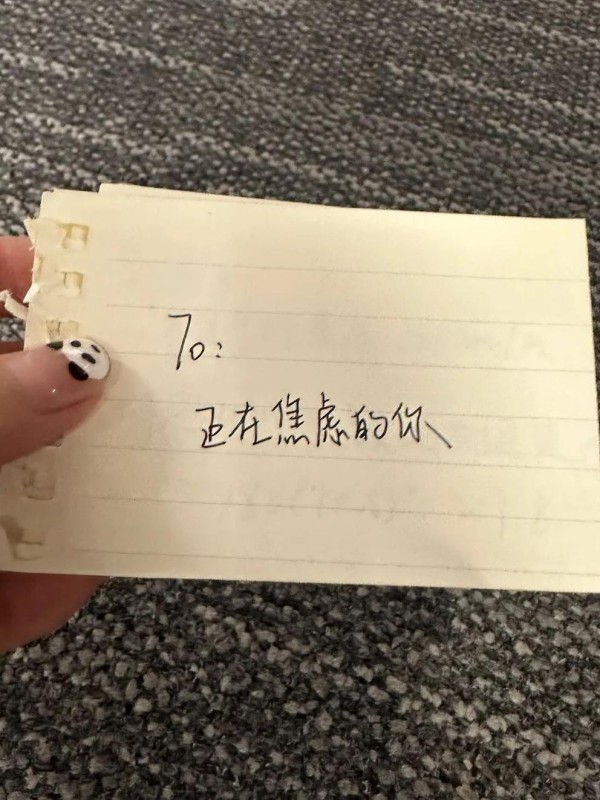 To:
正在焦虑的你、